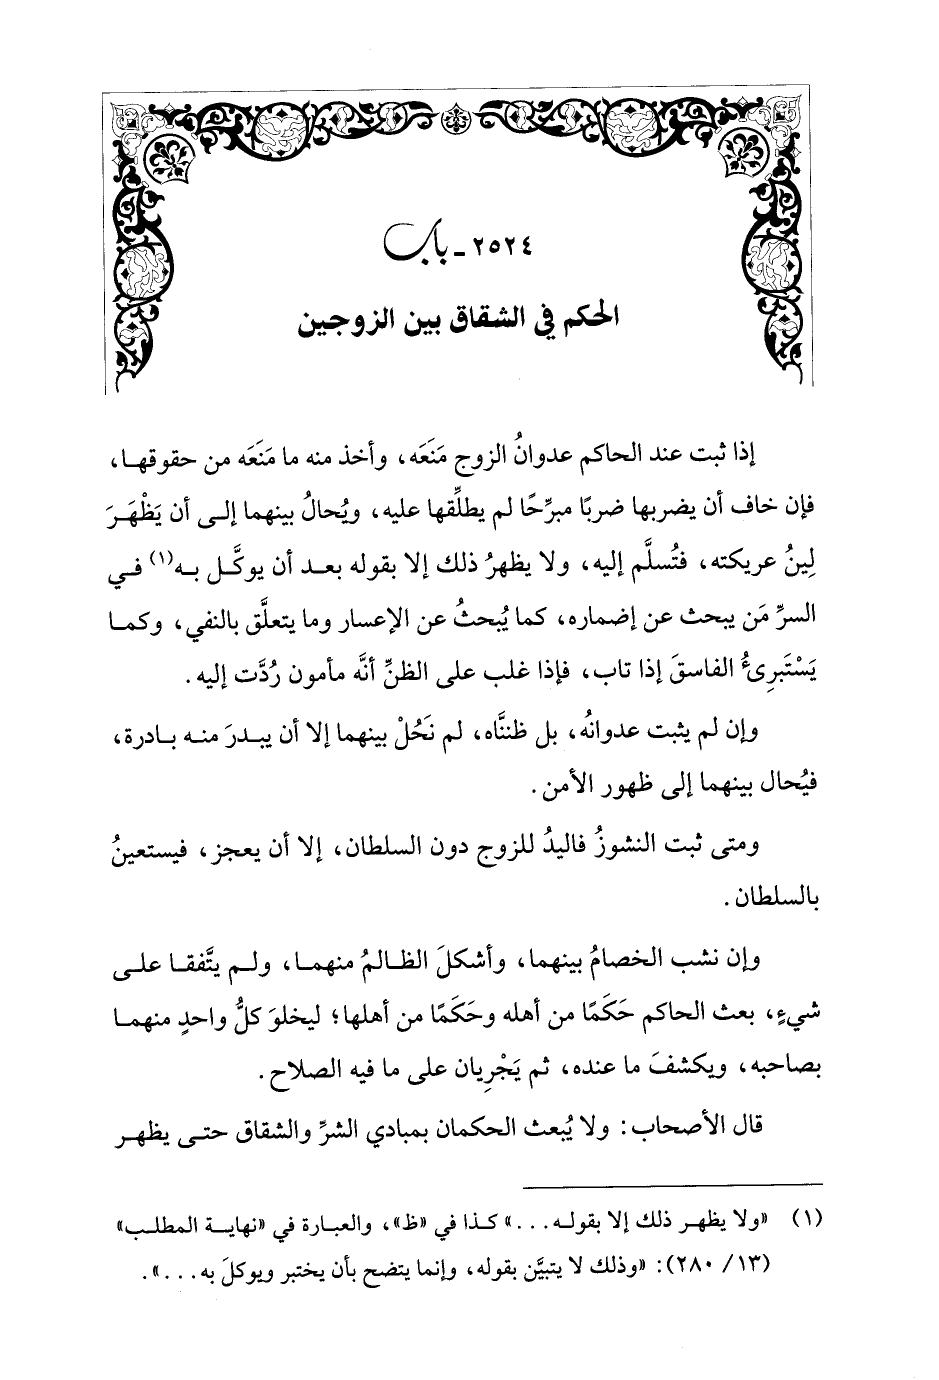 ٢٥٢٤ - باب
الحكم في الشقاق بين الزوجين
إذا ثبت عند الحاكم عدوانُ الزوج مَنَعَه، وأخذ منه ما مَنَعَه من حقوقها،
فإن خاف أن يضربها ضربًا مبرِّحًا لم يطلِّقها عليه، ويُحالُ بينهما إلى أن يَظْهَرَ
لِينُ عريكته، فتُسلَّم إليه، ولا يظهرُ ذلك إلا بقوله بعد أن يوكَّل به(١) في
السرِّ مَن يبحث عن إضماره، كما يُبحثُ عن الإعسار وما يتعلَّق بالنفي، وكما
يَسْتَبرِئُ الفاسقَ إذا تاب، فإذا غلب على الظنِّ أنَّه مأمون رُدَّت إليه.
وإن لم يثبت عدوانُه، بل ظننَّاه، لم نَحُلْ بينهما إلا أن يبدرَ منه بادرة،
فيُحال بينهما إلى ظهور الأمن.
ومتى ثبت النشوزُ فاليدُ للزوج دون السلطان، إلا أن يعجز، فيستعينُ
بالسلطان.
وإن نشب الخصامُ بينهما، وأشكلَ الظالمُ منهما، ولم يتَّفقا على
شيءٍ، بعث الحاكم حَكَمًا من أهله وحَكَمًا من أهلها؛ ليخلوَ كلُّ واحدٍ منهما
بصاحبه، ويكشفَ ما عنده، ثم يَجْرِيان على ما فيه الصلاح.
قال الأصحاب: ولا يُبعث الحكمان بمبادي الشرِّ والشقاق حتى يظهر
(١) «ولا يظهر ذلك إلا بقوله...» كذا في «ظ»، والعبارة في «نهاية المطلب»
(١٣/ ٢٨٠): «وذلك لا يتبيَّن بقوله، وإنما يتضح بأن يختبر ويوكلَ به...».